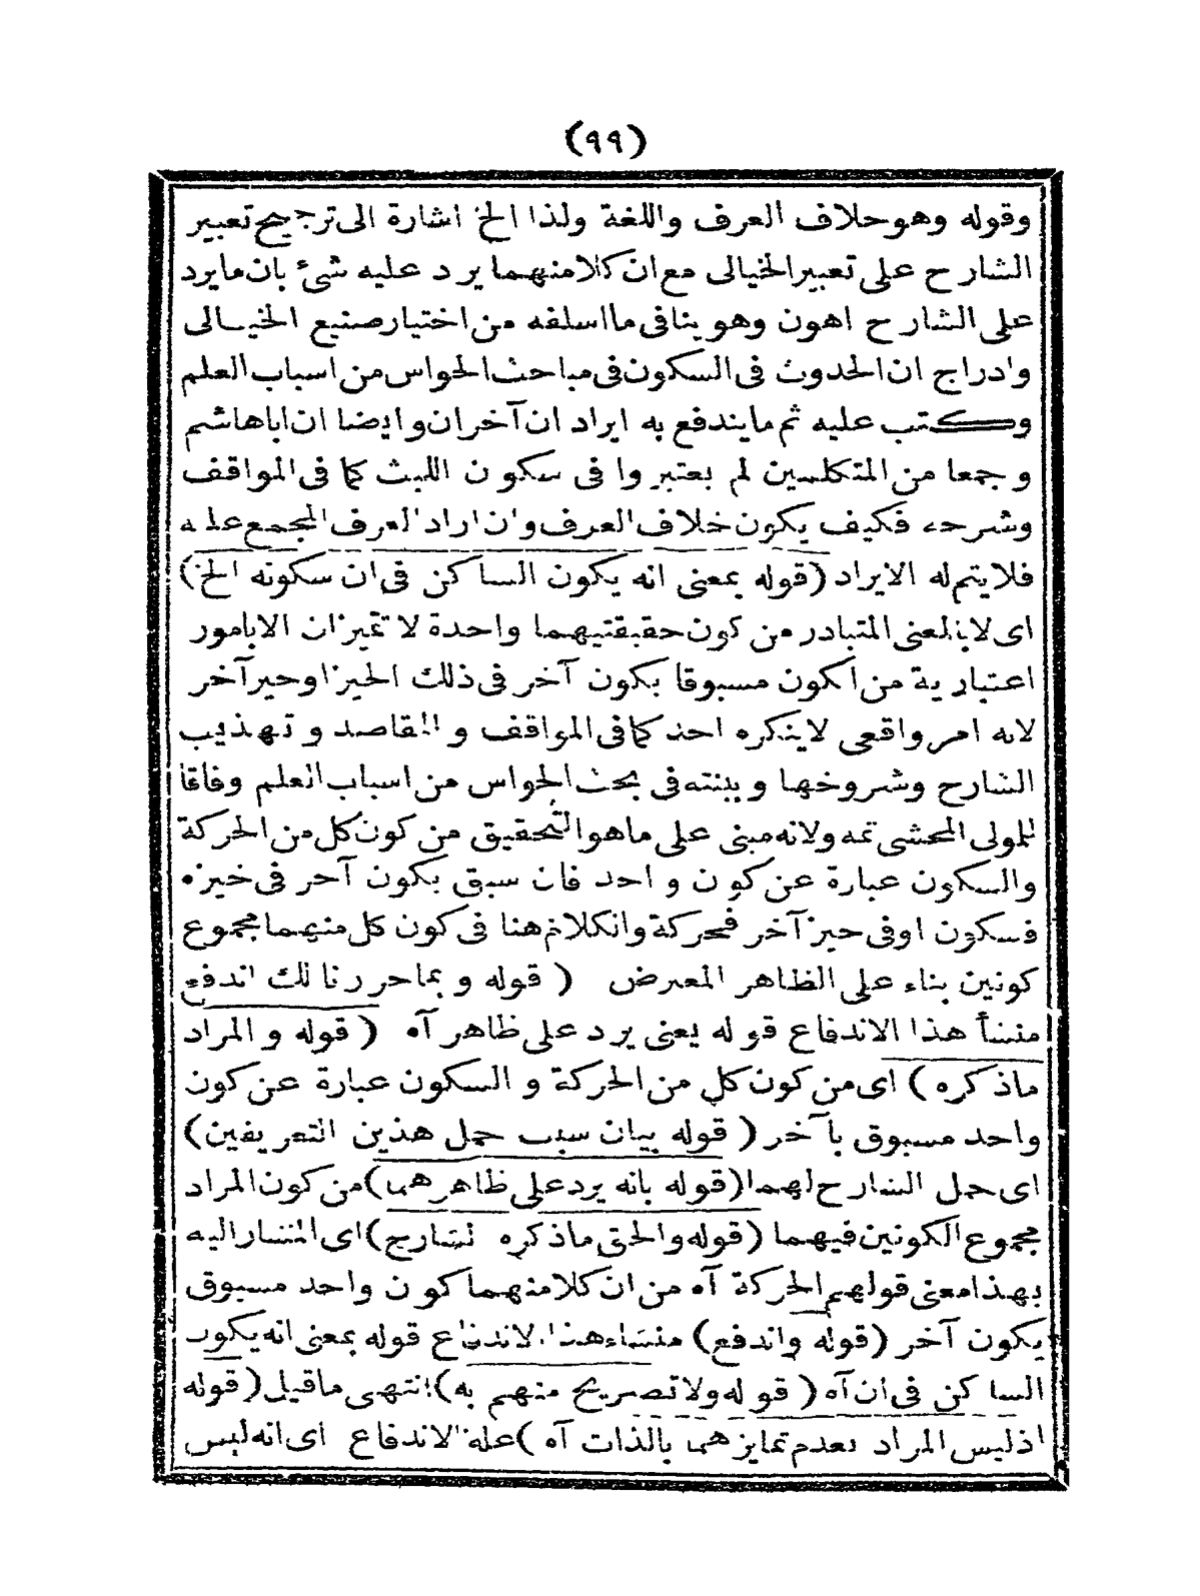 (٩٩)
وقوله وهو خلاف العرف واللغة ولذا الخ اشارة الى ترجيح تعبير
الشارح على تعبير الخيالى مع ان كلا منهما يرد عليه شئ بان ما يرد
على الشارح اهون وهو ينافى ما اسلفه من اختيار صنيع الخيالى
وادراج ان الحدوث فى السكون فى مباحث الحواس من اسباب العلم
وكتب عليه ثم ما يندفع به ايراد ان آخران وايضا ان اباهاشم
وجمعا من المتكلمين لم يعتبروا فى سكون اللبث كما فى المواقف
وشرحه فكيف يكون خلاف العرف وان اراد العرف المجمع عليه
فلا يتم له الايراد (قوله بمعنى انه يكون الساكن فى ان سكونه الخ)
اى لا بالمعنى المتبادر من كون حقيقتيهما واحدة لا تميزان الا بامور
اعتبارية من اكون مسبوقا بكون آخر فى ذلك الحيز او حيز آخر
لانه امر واقعى لا ينكره احد كما فى المواقف والمقاصد وتهذيب
الشارح وشروحها وبينته فى بحث الحواس من اسباب العلم وفاقا
للمولى المحشى ثمه ولانه مبنى على ما هو التحقيق من كون كل من الحركة
والسكون عبارة عن كون واحد فان سبق بكون آخر فى حيزه
فسكون او فى حيز آخر فحركة والكلام هنا فى كون كل منهما مجموع
كونين بناء على الظاهر المعترض (قوله وبما حررنا لك اندفع
منشأ هذا الاندفاع قوله يعنى يرد على ظاهر آه (قوله والمراد
ما ذكره) اى من كون كل من الحركة والسكون عبارة عن كون
واحد مسبوق بآخر (قوله بيان سبب حمل هذين التعريفين)
اى حمل الشارح لهما (قوله بانه يرد على ظاهرهما) من كون المراد
مجموع الكونين فيهما (قوله والحق ما ذكره الشارح) اى المشار اليه
بهذا معنى قولهم الحركة آه من ان كلا منهما كون واحد مسبوق
بكون آخر (قوله واندفع) منشاء هذا الاندفاع قوله بمعنى انه يكون
الساكن فى ان آه (قوله ولا تصريح منهم به) انتهى ما قيل (قوله
اذ ليس المراد بعدم تمايزهما بالذات آه) علة الاندفاع اى انه ليس